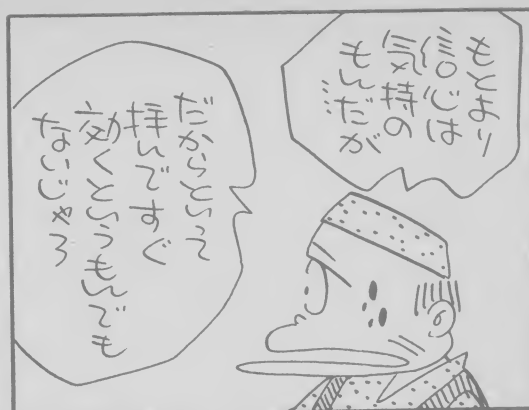 もとより
信心は
気持の
もんだが
……
だからといって
拝んですぐ
効くというもんでも
ないじゃろ